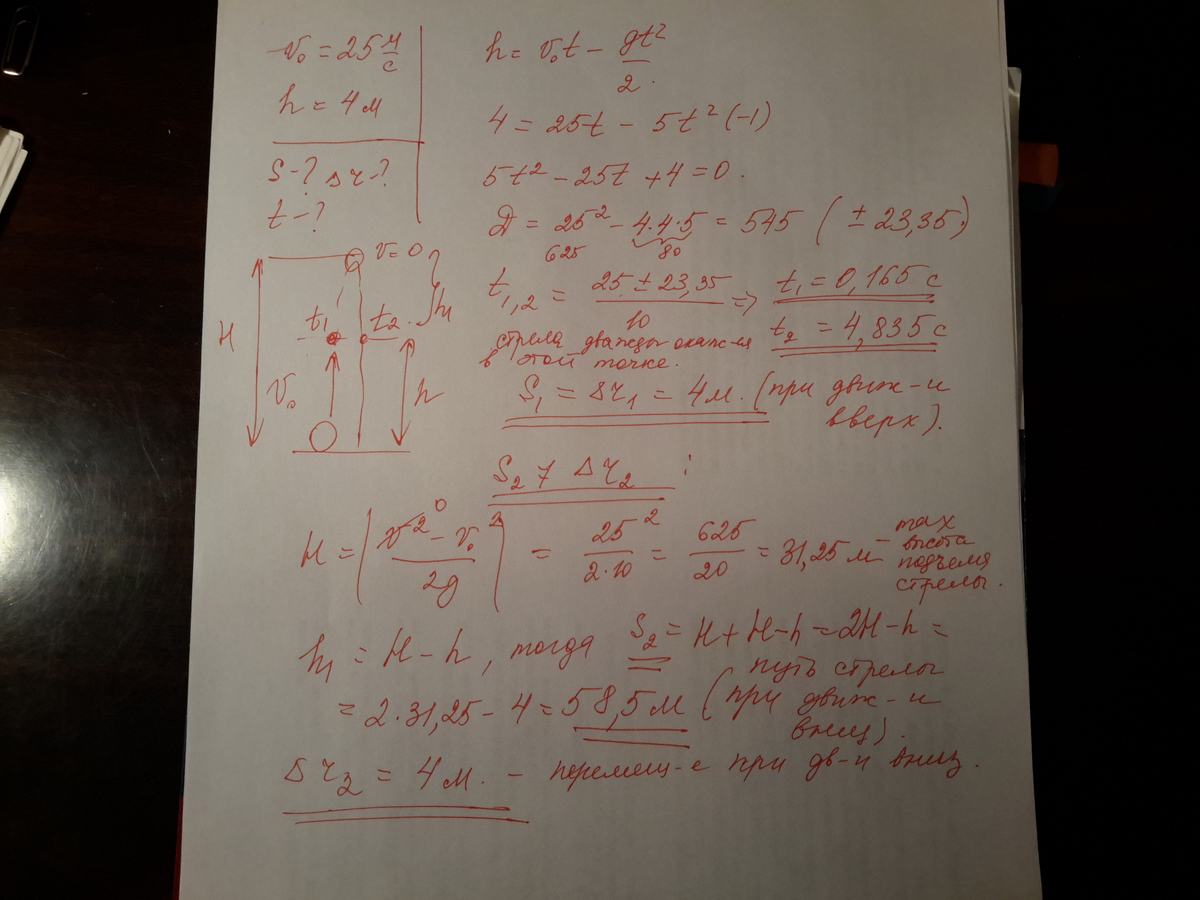 v₀ = 25 м/с
h = 4 м
S-? Δr-?
t-?
v=0
h₁
t₁ t₂
H
v₀
h
h = v₀t - gt²/2.
4 = 25t - 5t² (-1)
5t² - 25t + 4 = 0.
Д = 25² - 4·4·5 = 545 (± 23,35)
625 80
t₁,₂ = (25 ± 23,35)/10 => t₁ = 0,165 с
t₂ = 4,835 с
стрела дважды окаж-ся
в этой точке.
S₁ = Δr₁ = 4м. (при движ-и
вверх).
S₂ ≠ Δr₂ :
H = |(v² - v₀²)/2g| = 25²/2·10 = 625/20 = 31,25 м - max
0
высота
подъема
стрелы.
h₁ = H - h, тогда S₂ = H + H - h = 2H - h =
путь стрелы
= 2·31,25 - 4 = 58,5 м (при движ-и
вниз).
Δr₂ = 4 м. - перемещ-е при дв-и вниз.